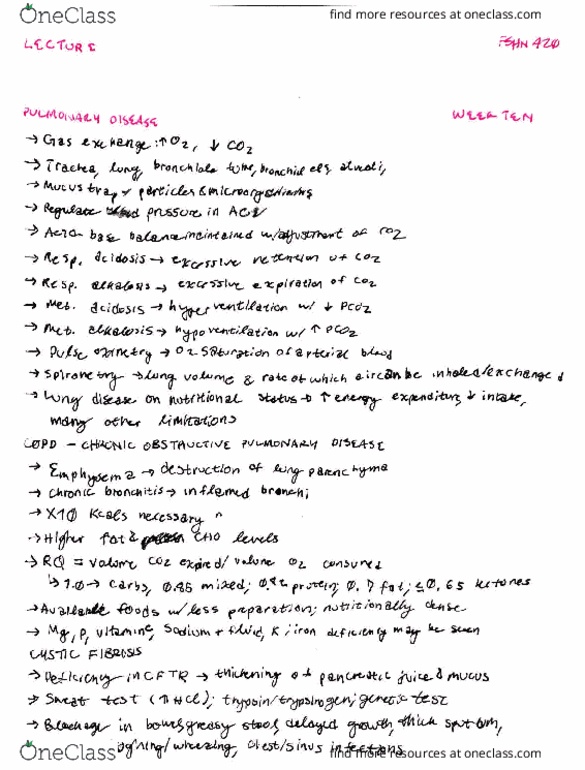 OneClass
find more resources at oneclass.com
LECTURE
FSHN 420
PULMONARY DISEASE
WEEK TEN
→ Gas exchange: ↑ O2, ↓ CO2
→ Trachea, lung, bronchiole tube, bronchiol
→ Mucus trap particles & microorganisms
→ Regulate pressure in
→ Acid-base balance maintained w/ adjustment of CO2
→ Resp. acidosis → excessive retention of CO2
→ Resp. alkalosis → excessive expiration of CO2
→ Met. acidosis → hyperventilation w/ ↓ PCO2
→ Met. alkalosis → hypoventilation w/ ↑ PCO2
→ Pulse oximetry → O2 saturation of arterial blood
→ Spirometry → lung volume & rate of which air can be inhaled/exchanged
→ Lung disease on nutritional status → ↑ energy expenditure, ↓ intake,
many other limitations
COPD – CHRONIC OBSTRUCTIVE PULMONARY DISEASE
→ Emphysema → destruction of lung parenchyma
→ Chronic bronchitis → inflamed bronchi
→ X10 Kcals necessary
→ Higher fat & CHO levels
→ RQ = volume CO2 expired/volume O2 consumed
↳ 1.0 → carbs, 0.85 mixed; protein; 0.7 fat; ≤0.65 ketones
→ Available foods w/ less preparation; nutritionally dense
→ Mg, P, vitamins, sodium + fluid, K; iron deficiency may be seen
CYSTIC FIBROSIS
→ Deficiency in CFTR → thickening of pancreatic juice & mucus
→ Sweat test (↑ HCl); trypsin/trypsinogen; genetic test
→ Blockage in bowel, greasy stool, delayed growth, thick sputum,
/wheezing, chest/sinus infections
OneClass
find more resources at oneclass.com